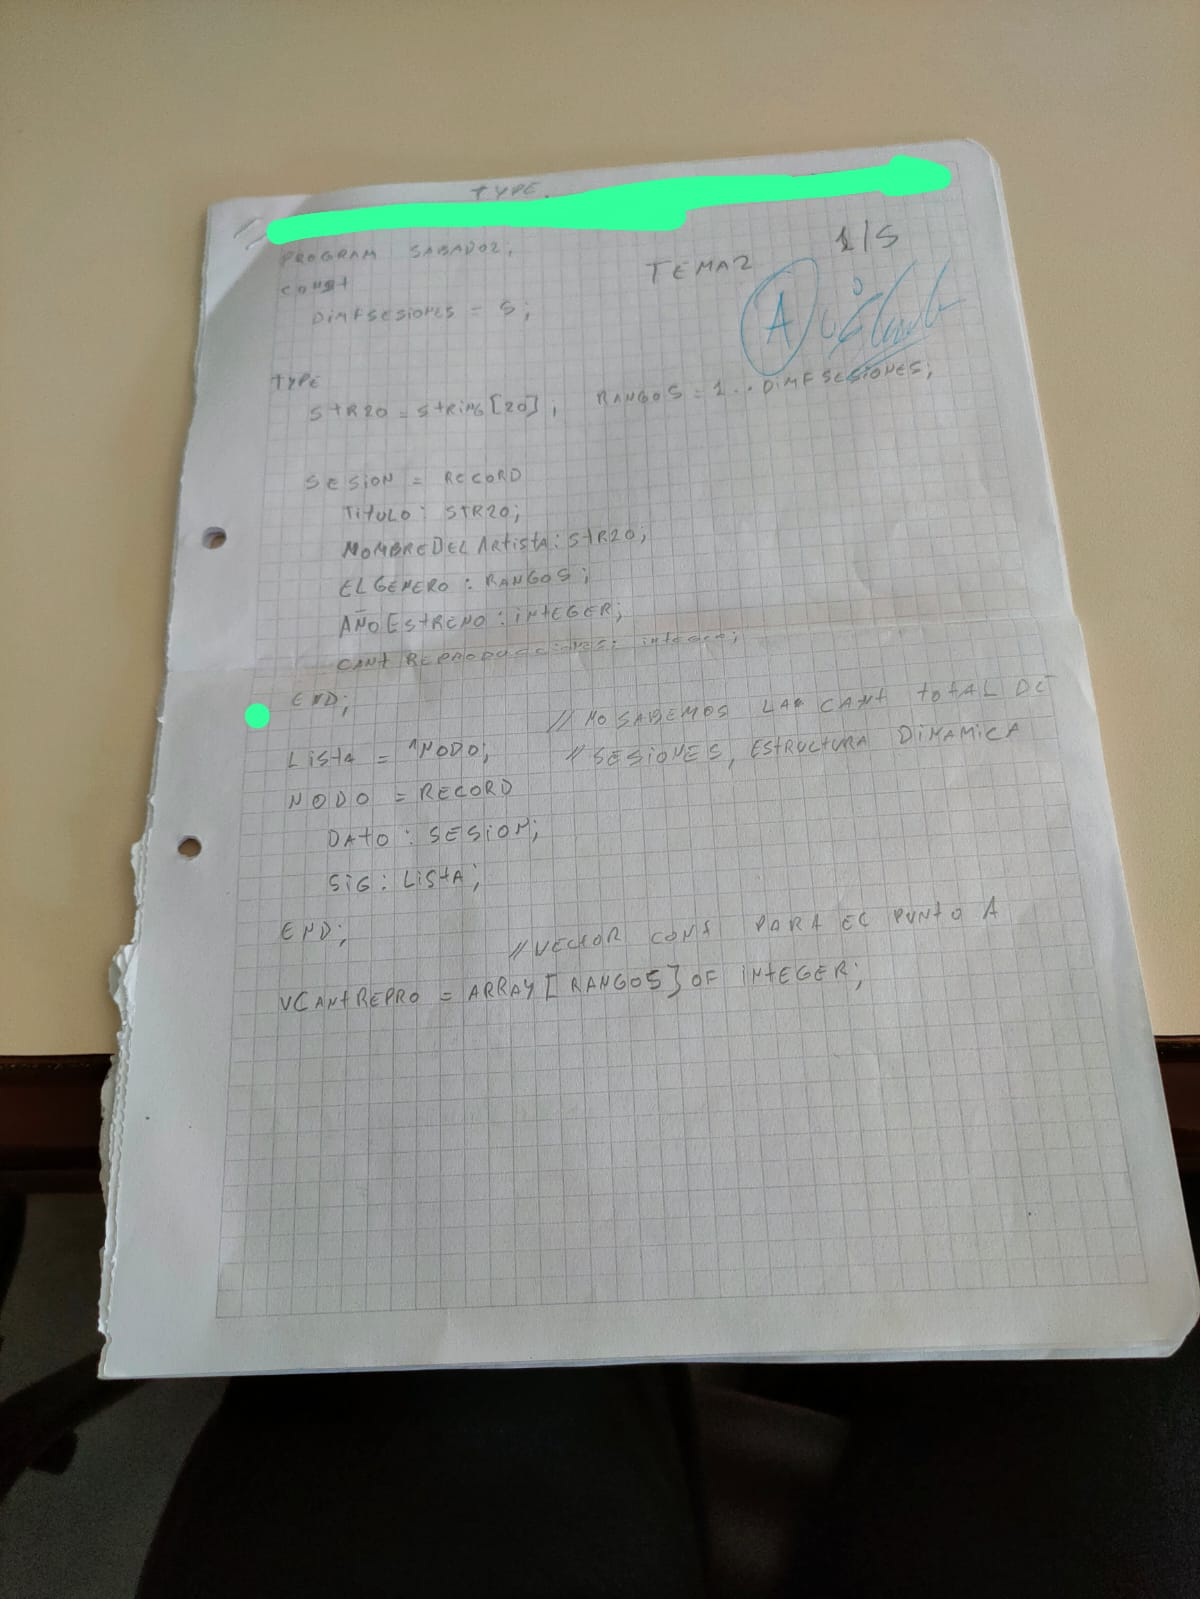 TYPE.
PROGRAM SABADO2;
const
DIMFSESIONES = 5;
TEMA2
1/5
A
TYPE
STR20 = STRING[20]; RANGOS = 1..DIMFSESIONES;
SESION = RECORD
TITULO: STR20;
NOMBREDELARTISTA: STR20;
ELGENERO: RANGOS;
AÑOESTRENO: INTEGER;
CANTREPRODUCCIONES: integer;
END;
LISTA = ^NODO; // NO SABEMOS LA CANT TOTAL DE
// SESIONES, ESTRUCTURA DINAMICA
NODO = RECORD
DATO: SESION;
SIG: LISTA;
END;
//VECTOR CONT PARA EL PUNTO A
VCANTREPRO = ARRAY[RANGOS] OF INTEGER;